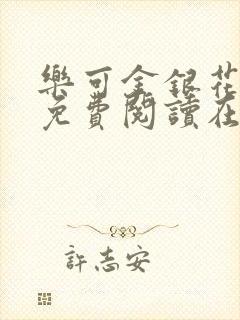 樂可金銀花
免費閱讀在
許志安